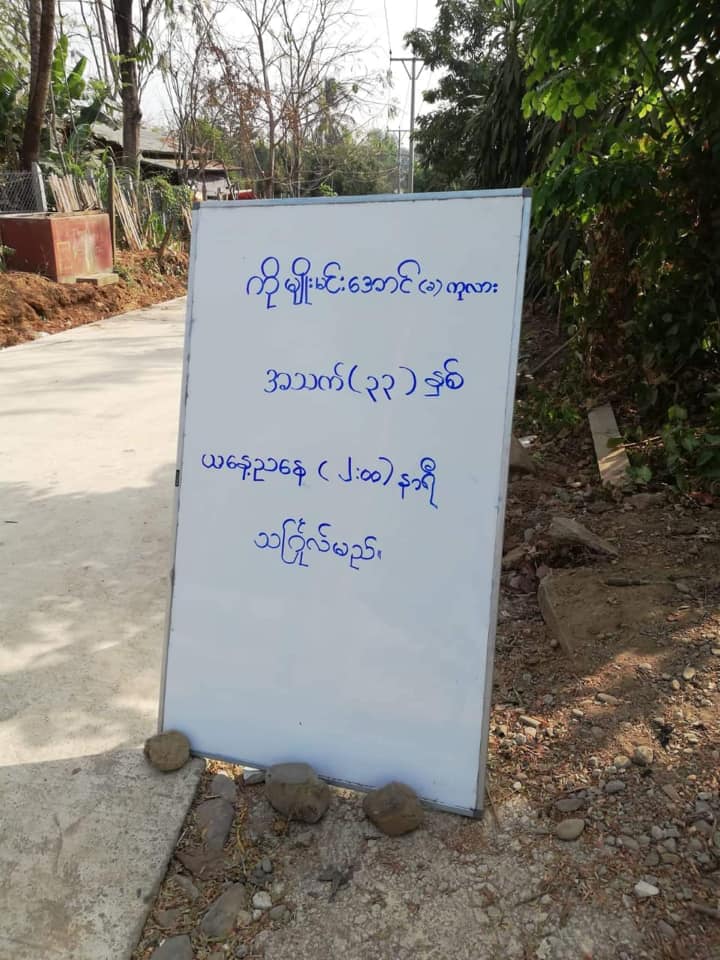 ကိုမျိုးမင်းအောင် (ခ) ကုလား
အသက် (၃၃) နှစ်
ယနေ့ညနေ (၂:၀၀) နာရီ
သင်္ဂြိုလ်မည်။